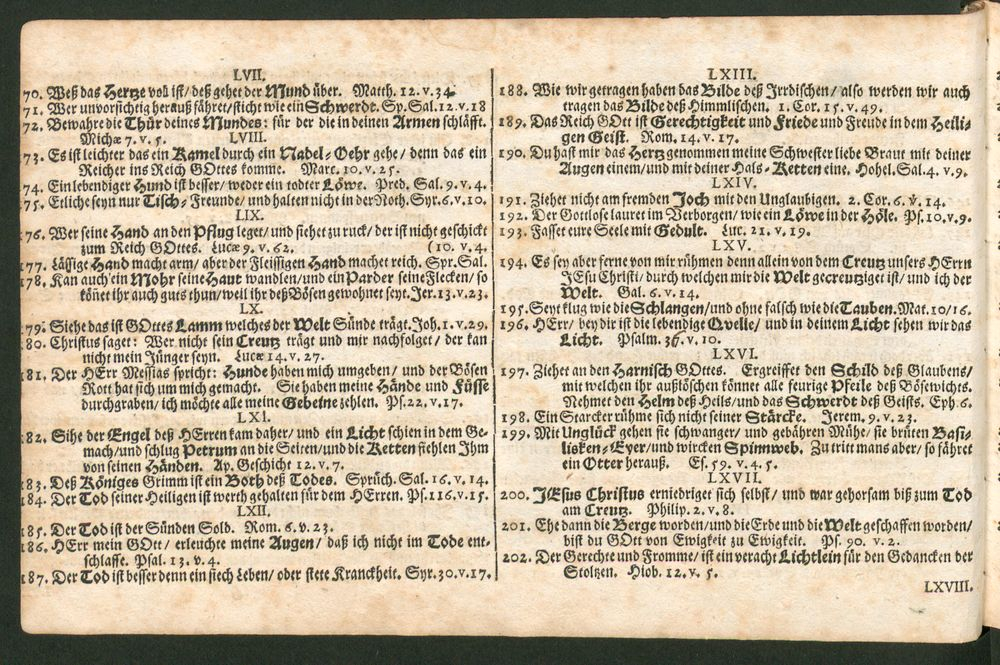 LVII.
70. Weß das Hertze voll ist/ deß gehet der Mund über. Matth. 12. v. 34.
71. Wer unvorsichtig herauß fähret/ sticht wie ein Schwerdt. Sp. Sal. 12. v. 18
72. Bewahre die Thür deines Mundes: für der die in deinen Armen schläfft.
Michæ 7. v. 5. LVIII.
73. Es ist leichter das ein Kamel durch ein Nadel-Oehr gehe/ denn das ein
Reicher ins Reich GOttes komme. Marc. 10. v. 25.
74. Ein lebendiger Hund ist besser/ weder ein todter Löwe. Pred. Sal. 9. v. 4.
75. Etliche seyn nur Tisch-Freunde/ und halten nicht in der Noth. Syr. 6. v. 10.
LIX.
76. Wer seine Hand an den Pflug leget/ und siehet zu ruck/ der ist nicht geschickt
zum Reich GOttes. Lucæ 9. v. 62. (10. v. 4.
177. Lässige Hand macht arm/ aber der Fleissigen Hand machet reich. Spr. Sal.
178. Kan auch ein Mohr seine Haut wandlen/ und ein Parder seine Flecken/ so
könet ihr auch guts thun/ weil ihr deß Bösen gewohnet seyt. Jer. 13. v. 23.
LX.
179. Siehe das ist GOttes Lamm welches der Welt Sünde trägt. Joh. 1. v. 29.
180. Christus saget: Wer nicht sein Creutz trägt und mir nachfolget/ der kan
nicht mein Jünger seyn. Lucæ 14. v. 27.
181. Der HErr Messias spricht: Hunde haben mich umgeben/ und der Bösen
Rott hat sich um mich gemacht. Sie haben meine Hände und Füsse
durchgraben/ ich möchte alle meine Gebeine zehlen. Ps. 22. v. 17.
LXI.
182. Sihe der Engel deß HErren kam daher/ und ein Licht schien in dem Ge-
mach/ und schlug Petrum an die Seiten/ und die Ketten fiehlen Ihm
von seinen Händen. Ap. Geschicht 12. v. 7.
183. Deß Königes Grimm ist ein Both deß Todes. Sprüch. Sal. 16. v. 14.
184. Der Tod seiner Heiligen ist werth gehalten für dem HErren. Ps. 116. v. 15.
LXII.
185. Der Tod ist der Sünden Sold. Rom. 6. v. 23.
186. HErr mein GOtt/ erleuchte meine Augen/ daß ich nicht im Tode ent-
schlaffe. Psal. 13. v. 4.
187. Der Tod ist besser denn ein siech Leben/ oder stete Kranckheit. Syr. 30. v. 17.
LXIII.
188. Wie wir getragen haben das Bilde deß Irdischen/ also werden wir auch
tragen das Bilde deß Himmlischen. 1. Cor. 15. v. 49.
189. Das Reich GOtt ist Gerechtigkeit und Friede und Freude in dem Heili-
gen Geist. Rom. 14. v. 17.
190. Du hast mir das Hertz genommen meine Schwester liebe Braut mit deiner
Augen einem/ und mit deiner Hals-Ketten eine. Hohel. Sal. 4. v. 9.
LXIV.
191. Ziehet nicht am fremden Joch mit den Unglaubigen. 2. Cor. 6. v. 14.
192. Der Gottlose lauret im Verborgen/ wie ein Löwe in der Höle. Ps. 10. v. 9.
193. Fasset eure Seele mit Gedult. Luc. 21. v. 19.
LXV.
194. Es sey aber ferne von mir rühmen denn allein von dem Creutz unsers HErrn
JEsu Christi/ durch welchen mir die Welt gecreutziget ist/ und ich der
Welt. Gal. 6. v. 14.
195. Seyt klug wie die Schlangen/ und ohne falsch wie die Tauben. Mat. 10/16.
196. HErr/ bey dir ist die lebendige Qvelle/ und in deinem Licht sehen wir das
Licht. Psalm. 36. v. 10.
LXVI.
197. Ziehet an den Harnisch GOttes. Ergreiffet den Schild deß Glaubens/
mit welchen ihr außlöschen könnet alle feurige Pfeile deß Bösewichts.
Nehmet den Helm deß Heils/ und das Schwerdt deß Geists. Eph. 6.
198. Ein Starcker rühme sich nicht seiner Stärcke. Jerem. 9. v. 23.
199. Mit Unglück gehen sie schwanger/ und gebähren Mühe/ sie brüten Basi-
lisken-Eyer/ und wircken Spinnweb. Zu tritt mans aber/ so fähret
ein Otter herauß. Es. 59. v. 4. 5.
LXVII.
200. JEsus Christus erniedriget sich selbst/ und war gehorsam biß zum Tod
am Creutz. Philip. 2. v. 8.
201. Ehe dann die Berge worden/ und die Erde und die Welt geschaffen worden/
bist du GOtt von Ewigkeit zu Ewigkeit. Ps. 90. v. 2.
202. Der Gerechte und Fromme/ ist ein veracht Lichtlein für den Gedancken der
Stoltzen. Hiob. 12. v. 5.
LXVIII.